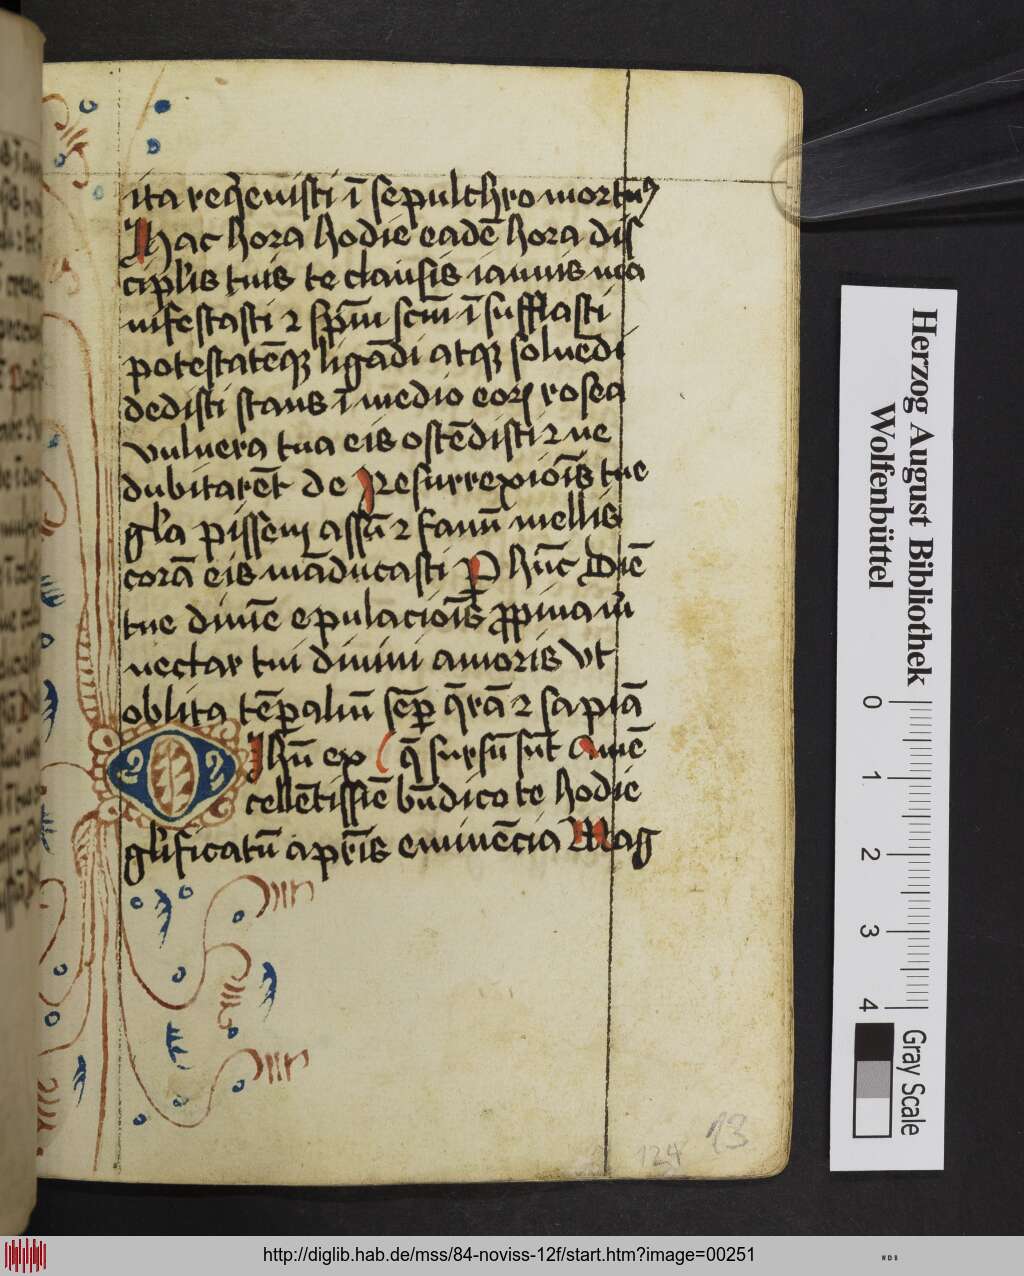 ita reqͥevisti ī sepulchro mortuꝰ
Hac hora hodie eadē hora dis
ciplis tuis te clausis ianuis ma
nifestasti ⁊ spm̄ scm̄ ī sufflasti
potestatēqꝫ ligādi atqꝫ soluēdi
dedisti stans ī medio eoꝝ rosea
vulnera tua eis ostēdisti ⁊ ne
dubitarēt de Resurrexiois̄ tue
gla pissem assū ⁊ fauū mellis
corā eis māducasti P hūc Diē
tue divine epulaciois̄ ꝓpina m
nectar tui divini amoris vt
oblita tēꝑaliū sēꝑ q̄rā ⁊ sapiā
O Ihū ex q̄ sursū sūt amē
cellētissīe bn̄dico te hodie
glificatū a pr̄is eminēcia Mag
13
124
Herzog August Bibliothek
Wolfenbüttel
0 1 2 3 4
Gray Scale
http://diglib.hab.de/mss/84-noviss-12f/start.htm?image=00251